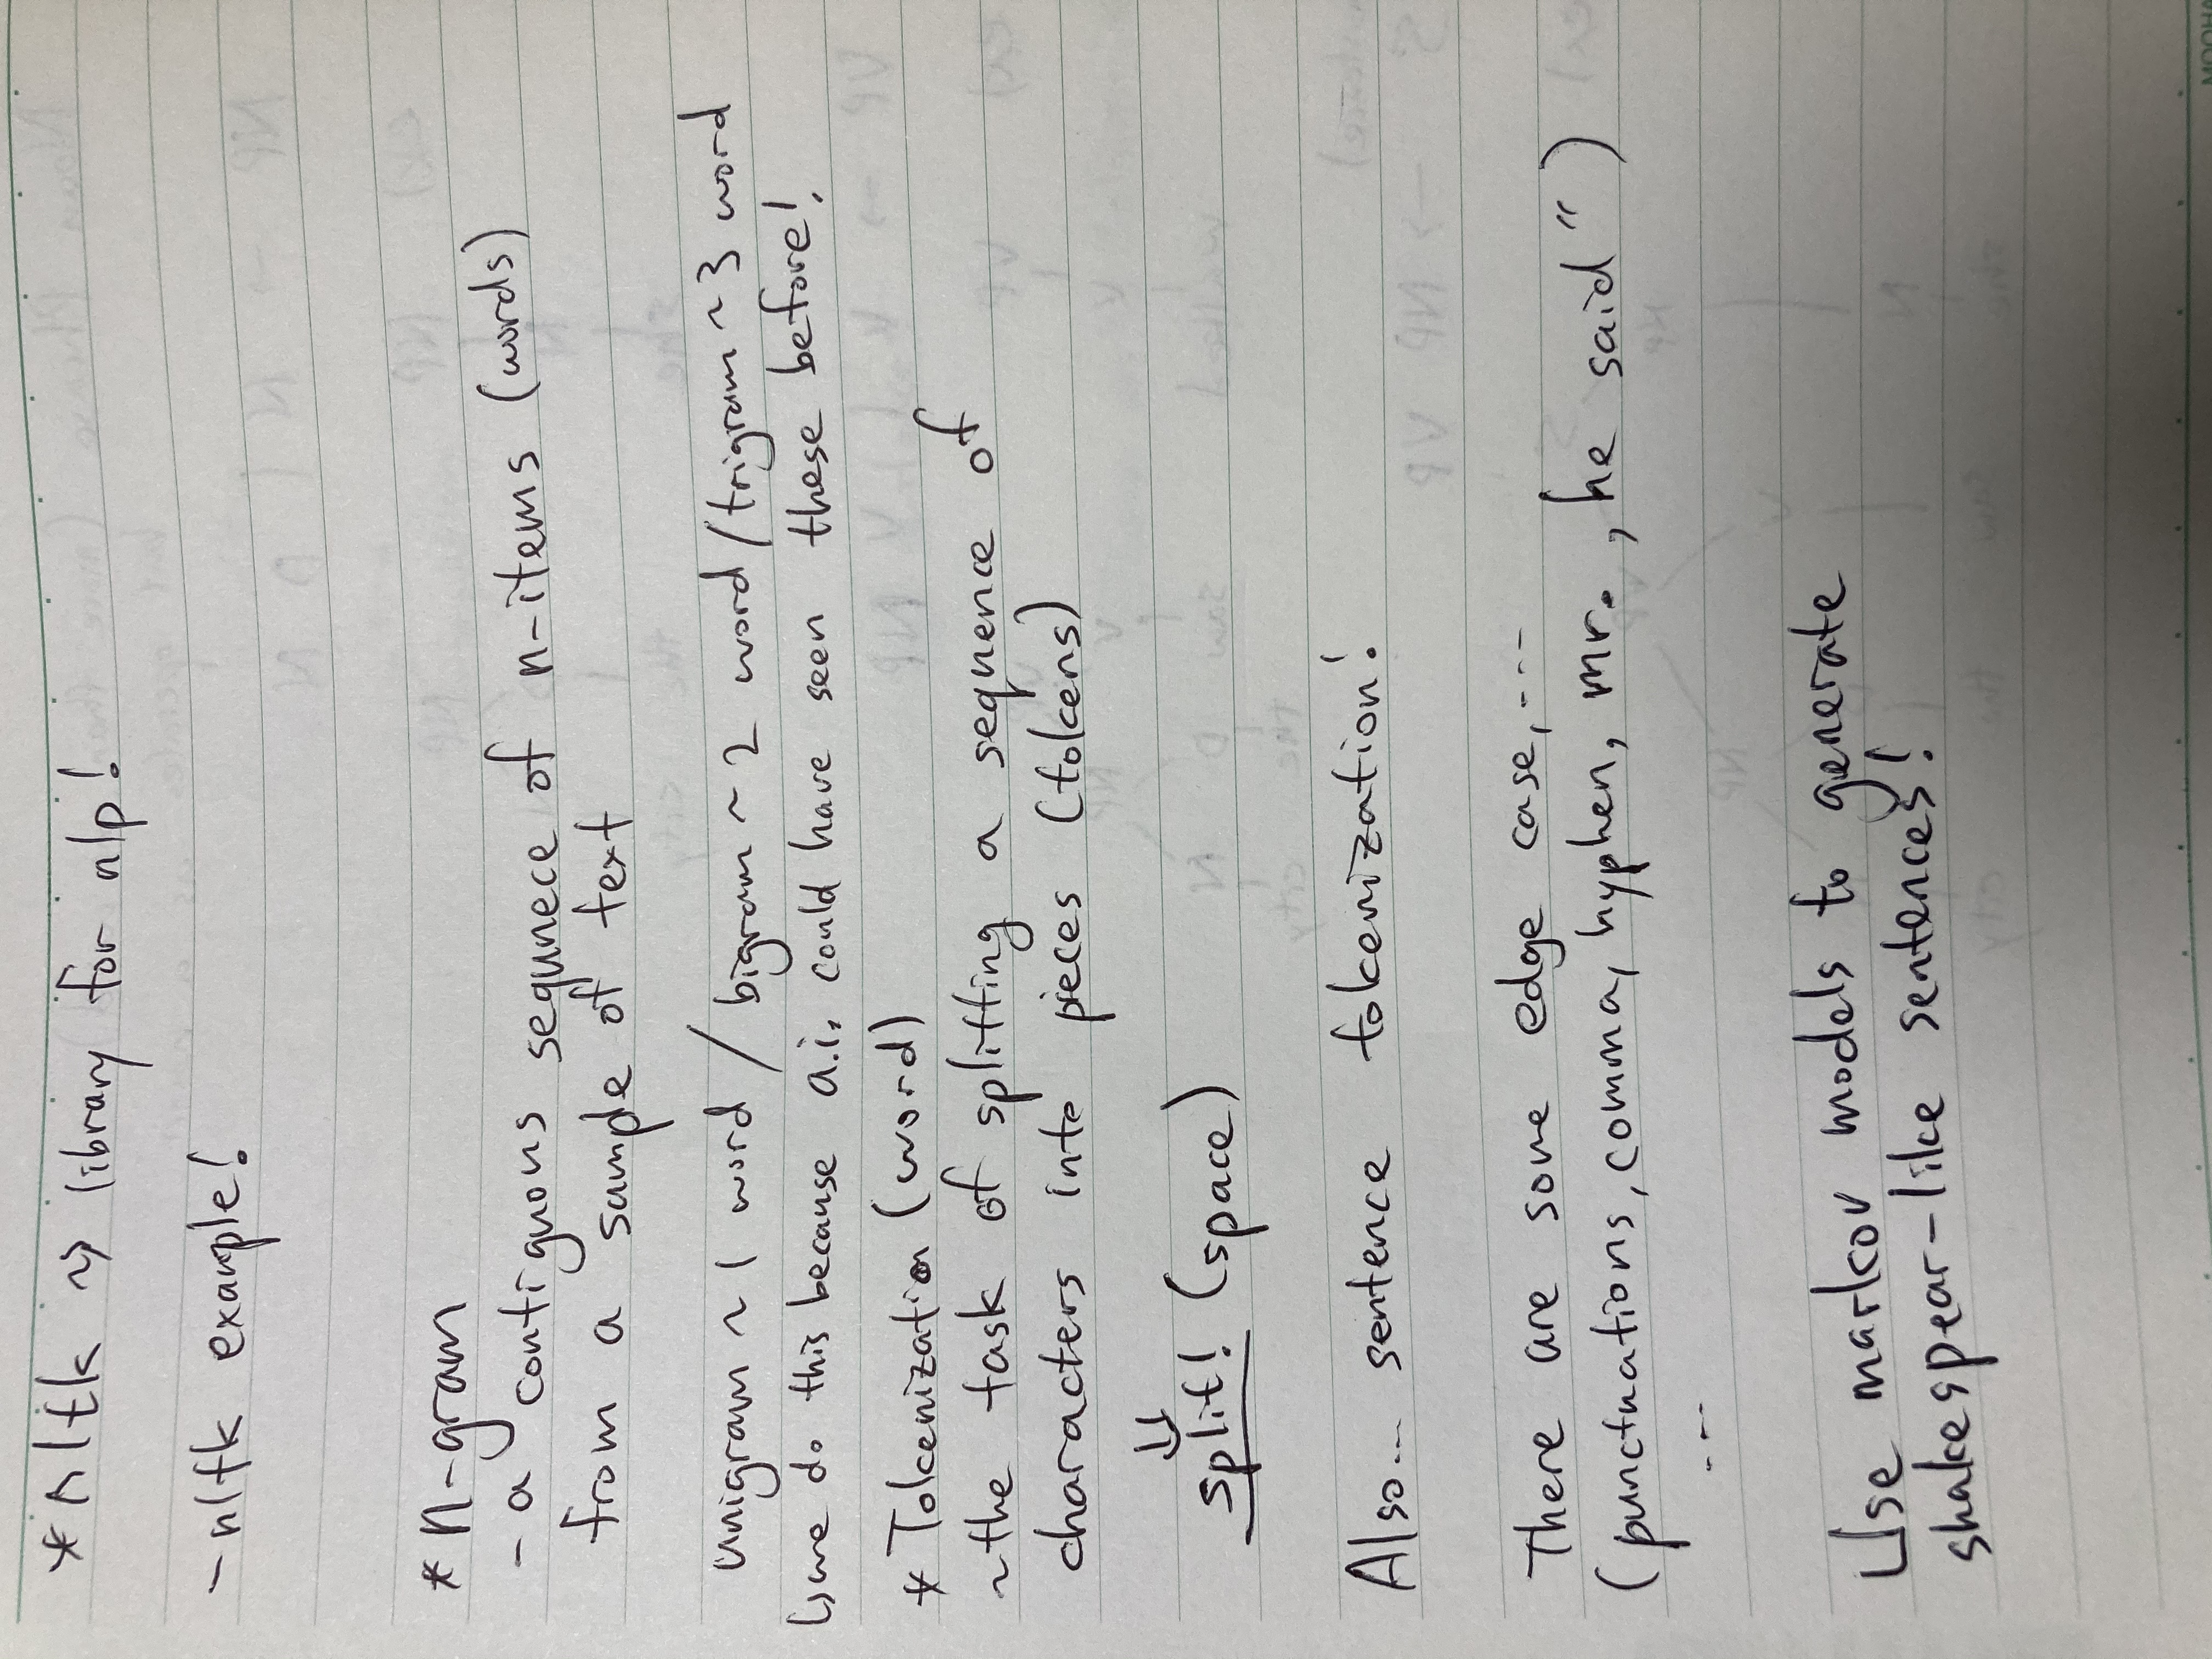 * nltk ~> library for nlp!
- nltk example!
* n-gram
- a contiguous sequnece of n-items (words)
from a sample of text
unigram ~ 1 word / bigram ~ 2 word / trigram ~ 3 word
↳ we do this because a.i. could have seen these before!
* Tokenization (word)
~ the task of splitting a sequence of
characters into pieces (tokens)
⇓
split! (space)
Also... sentence tokenization!
There are some edge case, ---
(punctuations, comma, hyphen, mr. , he said ")
---
Use markov models to generate
shakespear-like sentences!